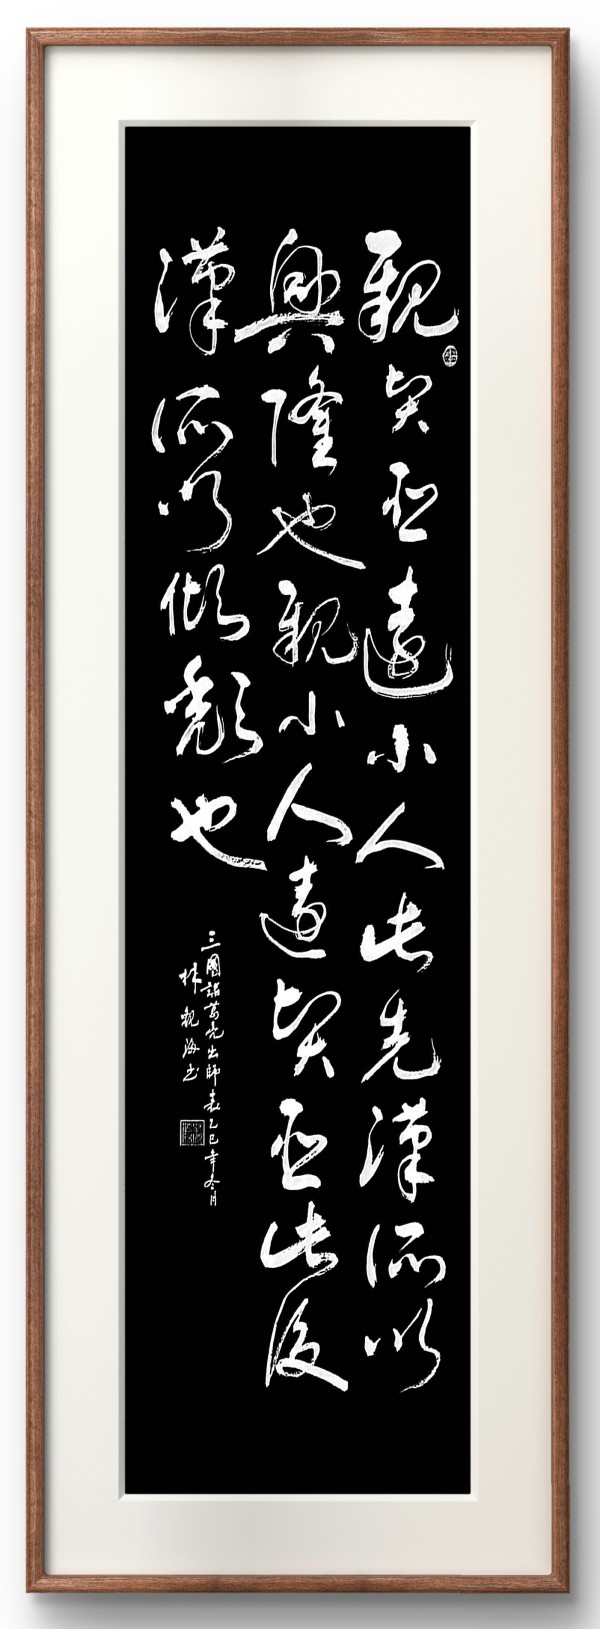 親賢臣遠小人此先漢所以
興隆也親小人遠賢臣此後
漢所以傾頹也
三國諸葛亮出師表乙巳年冬月
林親海书